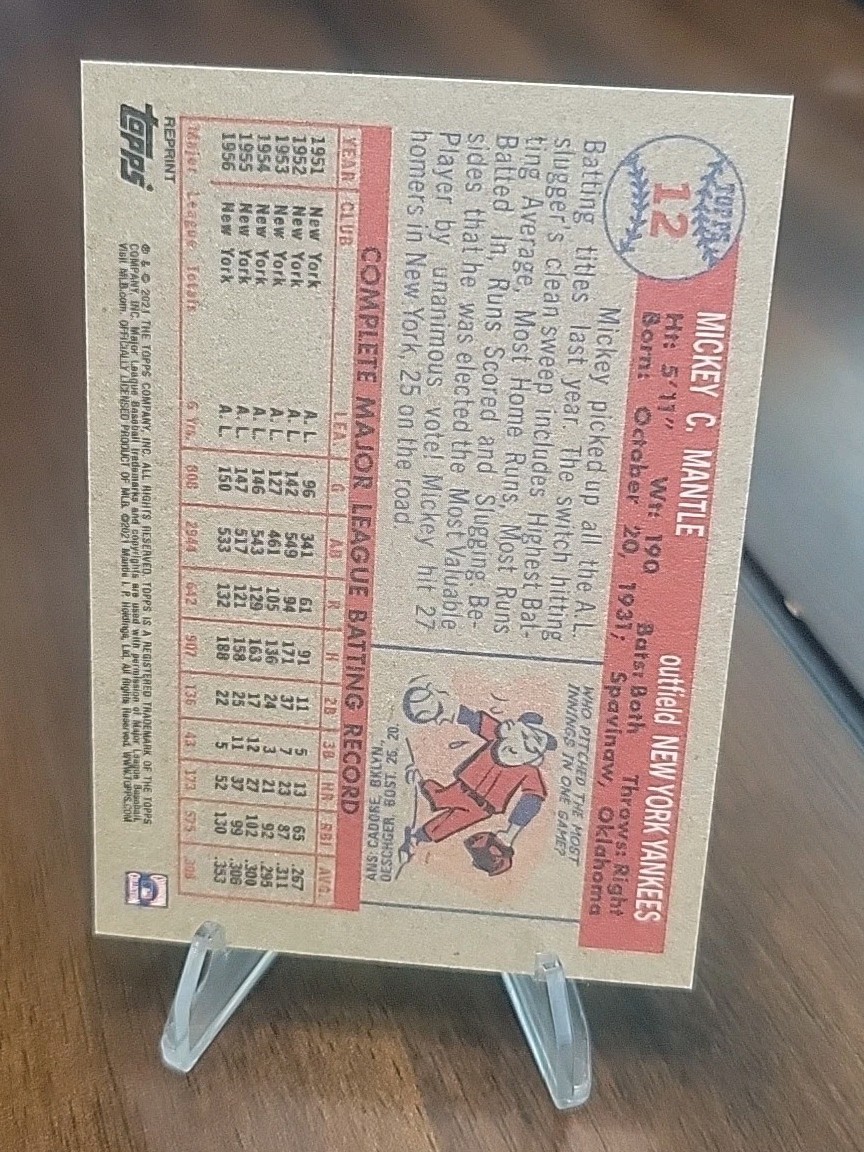 TOPPS
12
MICKEY C. MANTLE outfield NEW YORK YANKEES
Ht: 5'11" Wt: 190 Bats: Both Throws: Right
Born: October 20, 1931, Spavinaw, Oklahoma
Mickey picked up all the A.L.
Batting titles last year. The switch hitting
slugger's clean sweep includes Highest Bat-
ting Average, Most Home Runs, Most Runs
Batted In, Runs Scored and Slugging. Be-
sides that he was elected the Most Valuable
Player by unanimous vote! Mickey hit 27
homers in New York, 25 on the road.
WHO PITCHED THE MOST
INNINGS IN ONE GAME?
ANS: CADORE, BKLYN.
OESCHGER, BOST. 26, '20.
COMPLETE MAJOR LEAGUE BATTING RECORD
YEAR CLUB LEA G AB R H 2B 3B HR RBI AVG.
1951 New York A. L. 96 341 61 91 11 5 13 65 .267
1952 New York A. L. 142 549 94 171 37 7 23 87 .311
1953 New York A. L. 127 461 105 136 24 3 21 92 .295
1954 New York A. L. 146 543 129 163 17 12 27 102 .300
1955 New York A. L. 147 517 121 158 25 11 37 99 .306
1956 New York A. L. 150 533 132 188 22 5 52 130 .353
Major League Totals 6 Yrs. 808 2944 642 907 136 43 173 575 .308
REPRINT
topps
® & © 2021 THE TOPPS COMPANY, INC. ALL RIGHTS RESERVED. TOPPS IS A REGISTERED TRADEMARK OF THE TOPPS
COMPANY, INC. Major League Baseball trademarks and copyrights are used with permission of Major League Baseball.
Visit MLB.com. OFFICIALLY LICENSED PRODUCT OF MLB. ©2021 Mantle I. P. Holdings, Ltd. All Rights Reserved. WWW.TOPPS.COM